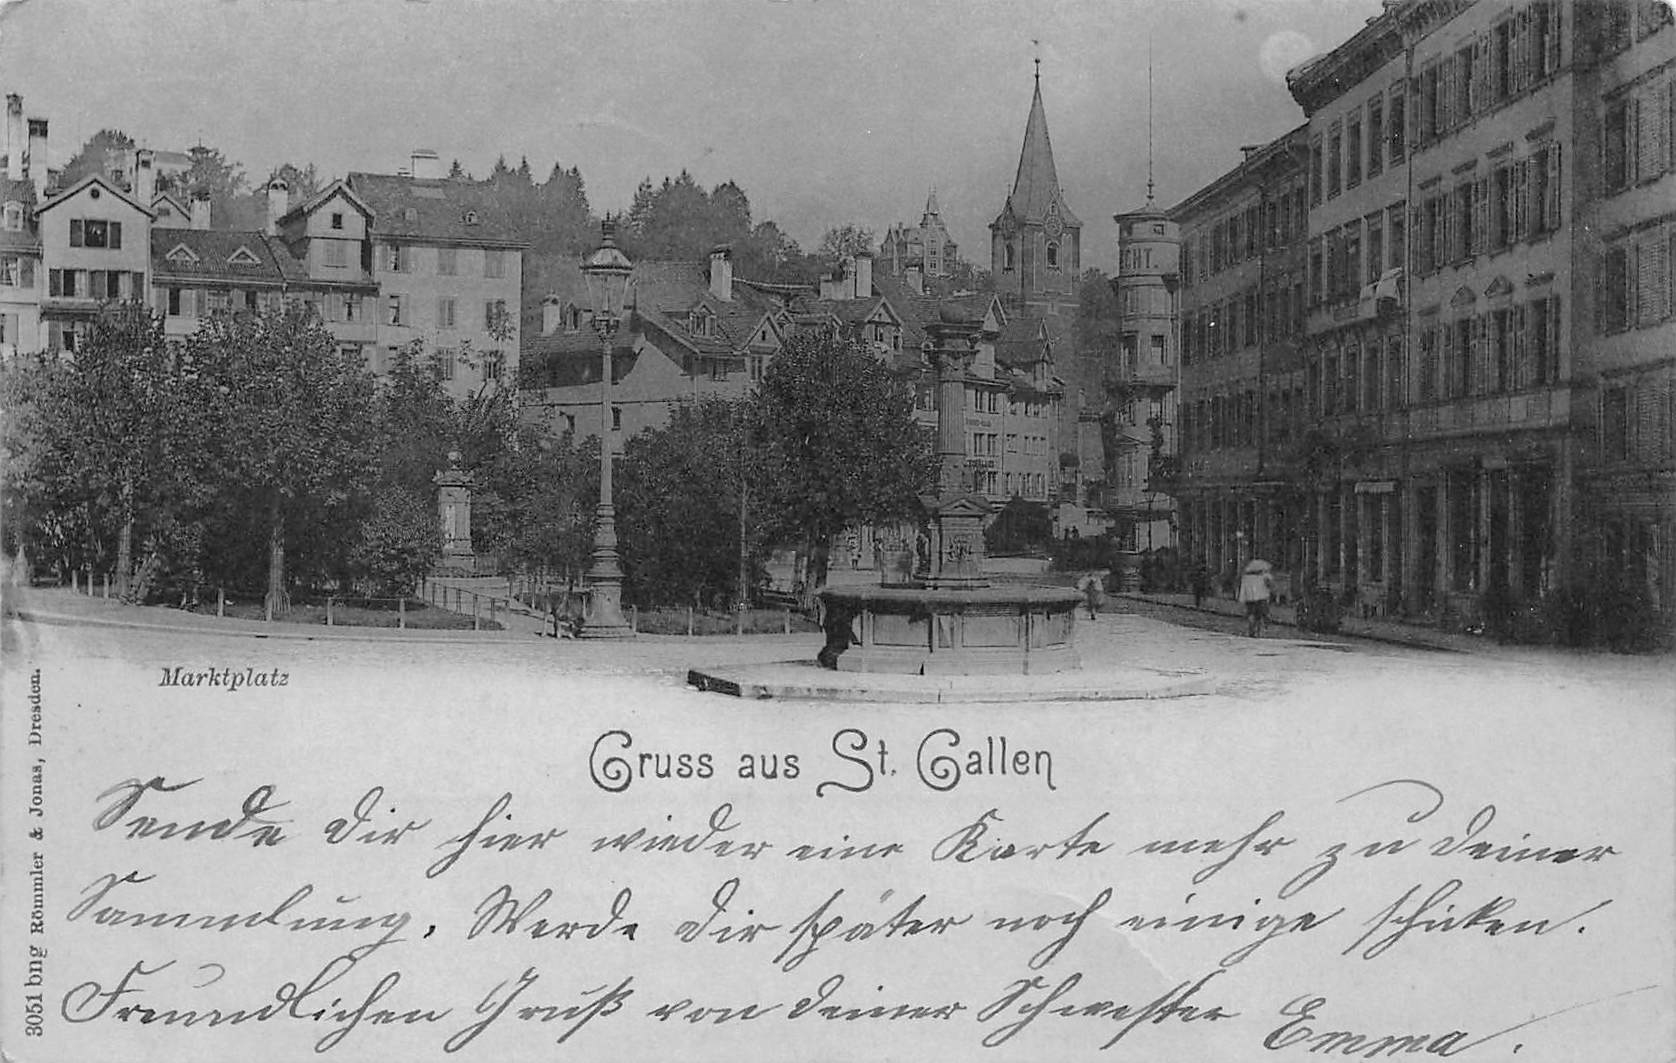 Marktplatz
Gruss aus St. Gallen
Sende dir hier wieder eine Karte mehr zu deiner
Sammlung. Werde dir später noch einige schicken.
Freundlichen Gruß von deiner Schwester Emma.
3051 bng Römmler & Jonas, Dresden.